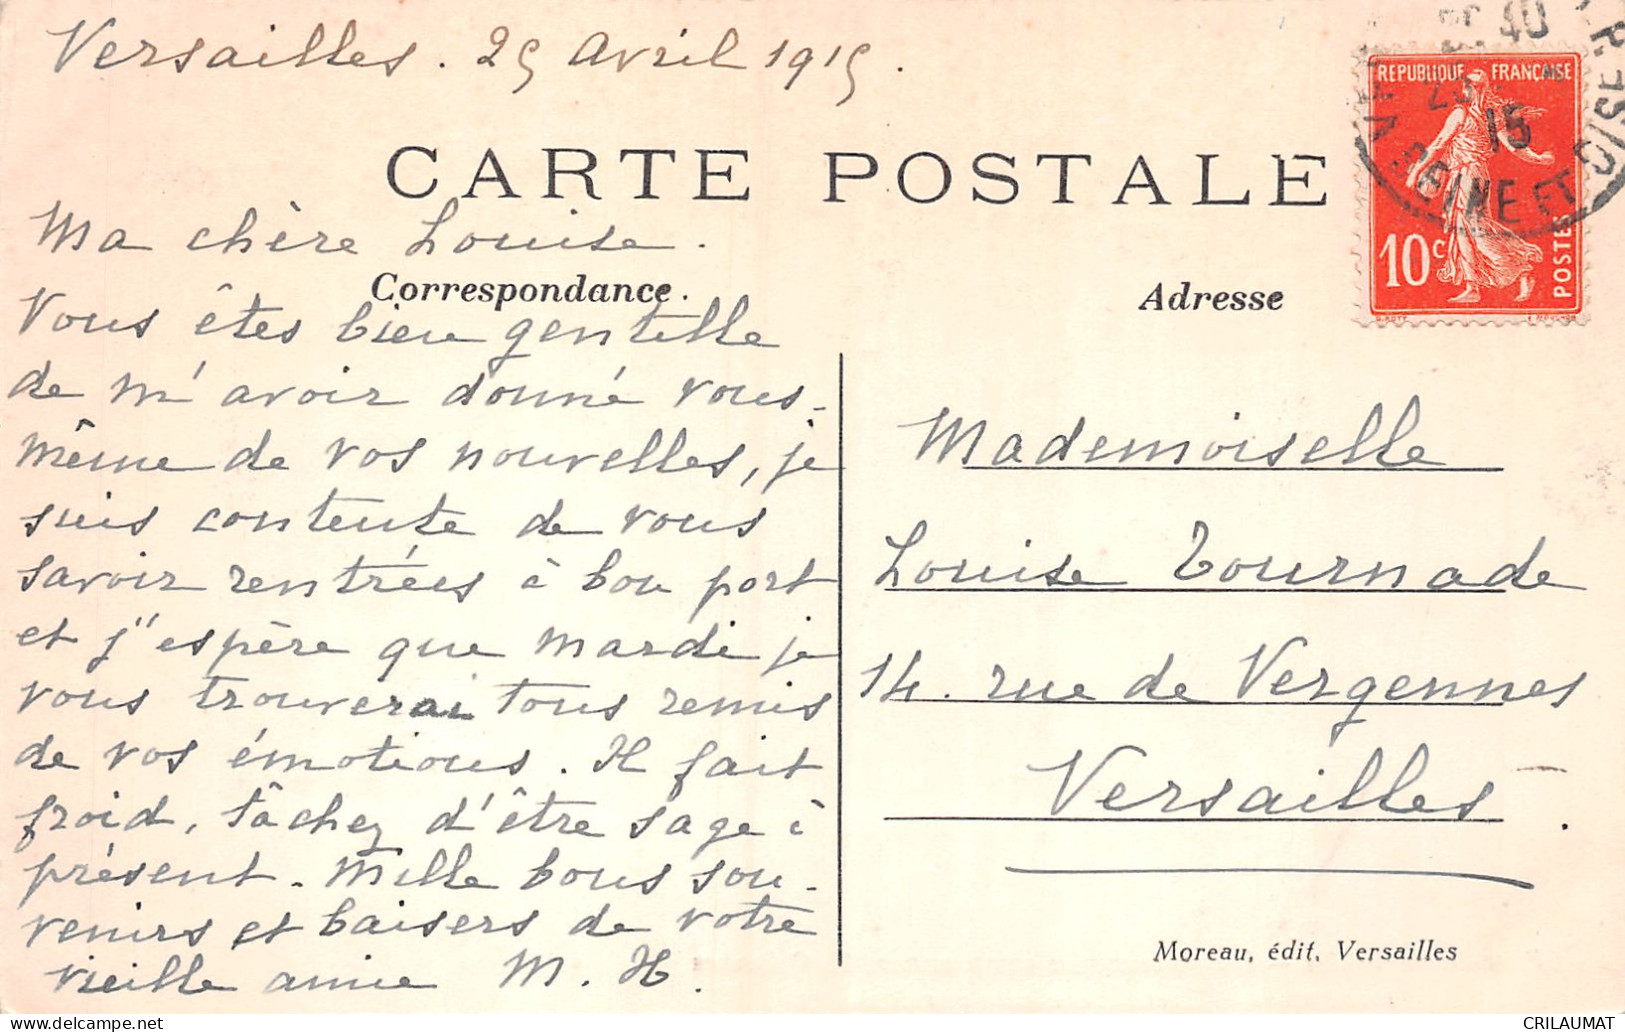 Versailles. 25 Avril 1915.
REPUBLIQUE FRANÇAISE
15
SEINE ET OISE
10c
POSTES
CARTE POSTALE
Ma chère Louise.
Correspondance.
Adresse
Vous êtes bien gentille
de m'avoir donné vous-
même de vos nouvelles, je
suis contente de vous
savoir rentrées à bon port
et j'espère que Mardi je
vous trouverai tous remis
de vos émotions. Il fait
froid, tâchez d'être sage à
présent. Mille bons sou-
venirs et baisers de votre
vieille amie M. H.
Mademoiselle
Louise Tournade
14. rue de Vergennes
Versailles.
Moreau, édit, Versailles
CRILAUMAT